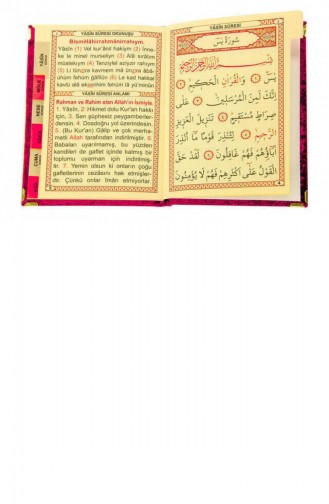 YÂSÎN SÛRESİ OKUNUŞU
Bismillâhirrahmânirrahıym.
Yâsîn (1) Vel kur'ânil hakiym (2) İnne-
ke le minel murseliyn (3) Alâ sırâtim
müstekıym (4) Tenziylel aziyzir rahıym
(5) Li tünzira kavmem mâ ünzira âbâ-
ünüm fehum ğâfilun (6) Le kad hakkal
kavlü alâ ekserihim fehüm lâ yü'minûn
YÂSÎN SÛRESİ ANLAMI
Rahman ve Rahim olan Allah'ın ismiyle.
1. Yâsîn, 2. Hikmet dolu Kur'an hakkı
için, 3. Sen şüphesiz peygamberler-
densin. 4. Dosdoğru yol üzerindesin.
5. (Bu Kur'an) Gâlip ve çok merha-
metli Allah tarafından indirilmiştir. 6.
Babaları uyarılmamış, bu yüzden
kendileri de gaflet içinde kalmış bir
toplumu uyarman için indirilmiş-
tir. 7. Yemin olsun ki onların çoğu
gafletlerinin cezâsını hak etmişler-
dir. Çünkü onlar îmân etmiyorlar.
YÂSİN
MÜLK
NEBE
CUMA
YÂSİN SÛRESİ
سُورَةُ يٰسٓ
بِسْمِ اللّٰهِ الرَّحْمٰنِ الرَّحِيمِ
يٰسٓ ۞ وَالْقُرْاٰنِ الْحَكِيمِ ۞
اِنَّكَ لَمِنَ الْمُرْسَلِينَ ۞ عَلٰى
صِرَاطٍ مُسْتَقِيمٍ ۞ تَنْزِيلَ الْعَزِيزِ
الرَّحِيمِ ۞ لِتُنْذِرَ قَوْمًا مَٓا اُنْذِرَ
اٰبَٓاؤُ۬هُمْ فَهُمْ غَافِلُونَ ۞ لَقَدْ حَقَّ
الْقَوْلُ عَلٰٓى اَكْثَرِهِمْ فَهُمْ لَا يُؤْمِنُونَ